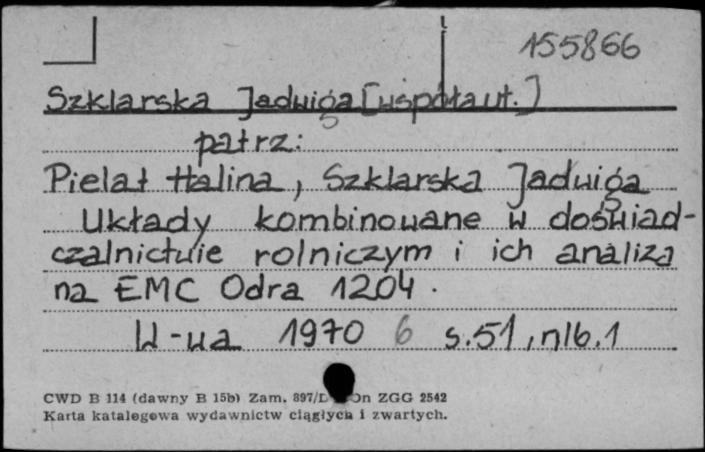 155866
Szklarska Jadwiga [współaut.]
patrz:
Pielat Halina, Szklarska Jadwiga
Układy kombinowane w doświad-
czalnictwie rolniczym i ich analiza
na EMC Odra 1204.
W-wa 1970 6 s.51, nlb.1
CWD B 114 (dawny B 15b) Zam. 897/D ZGG 2542
Karta katalogowa wydawnictw ciągłych i zwartych.